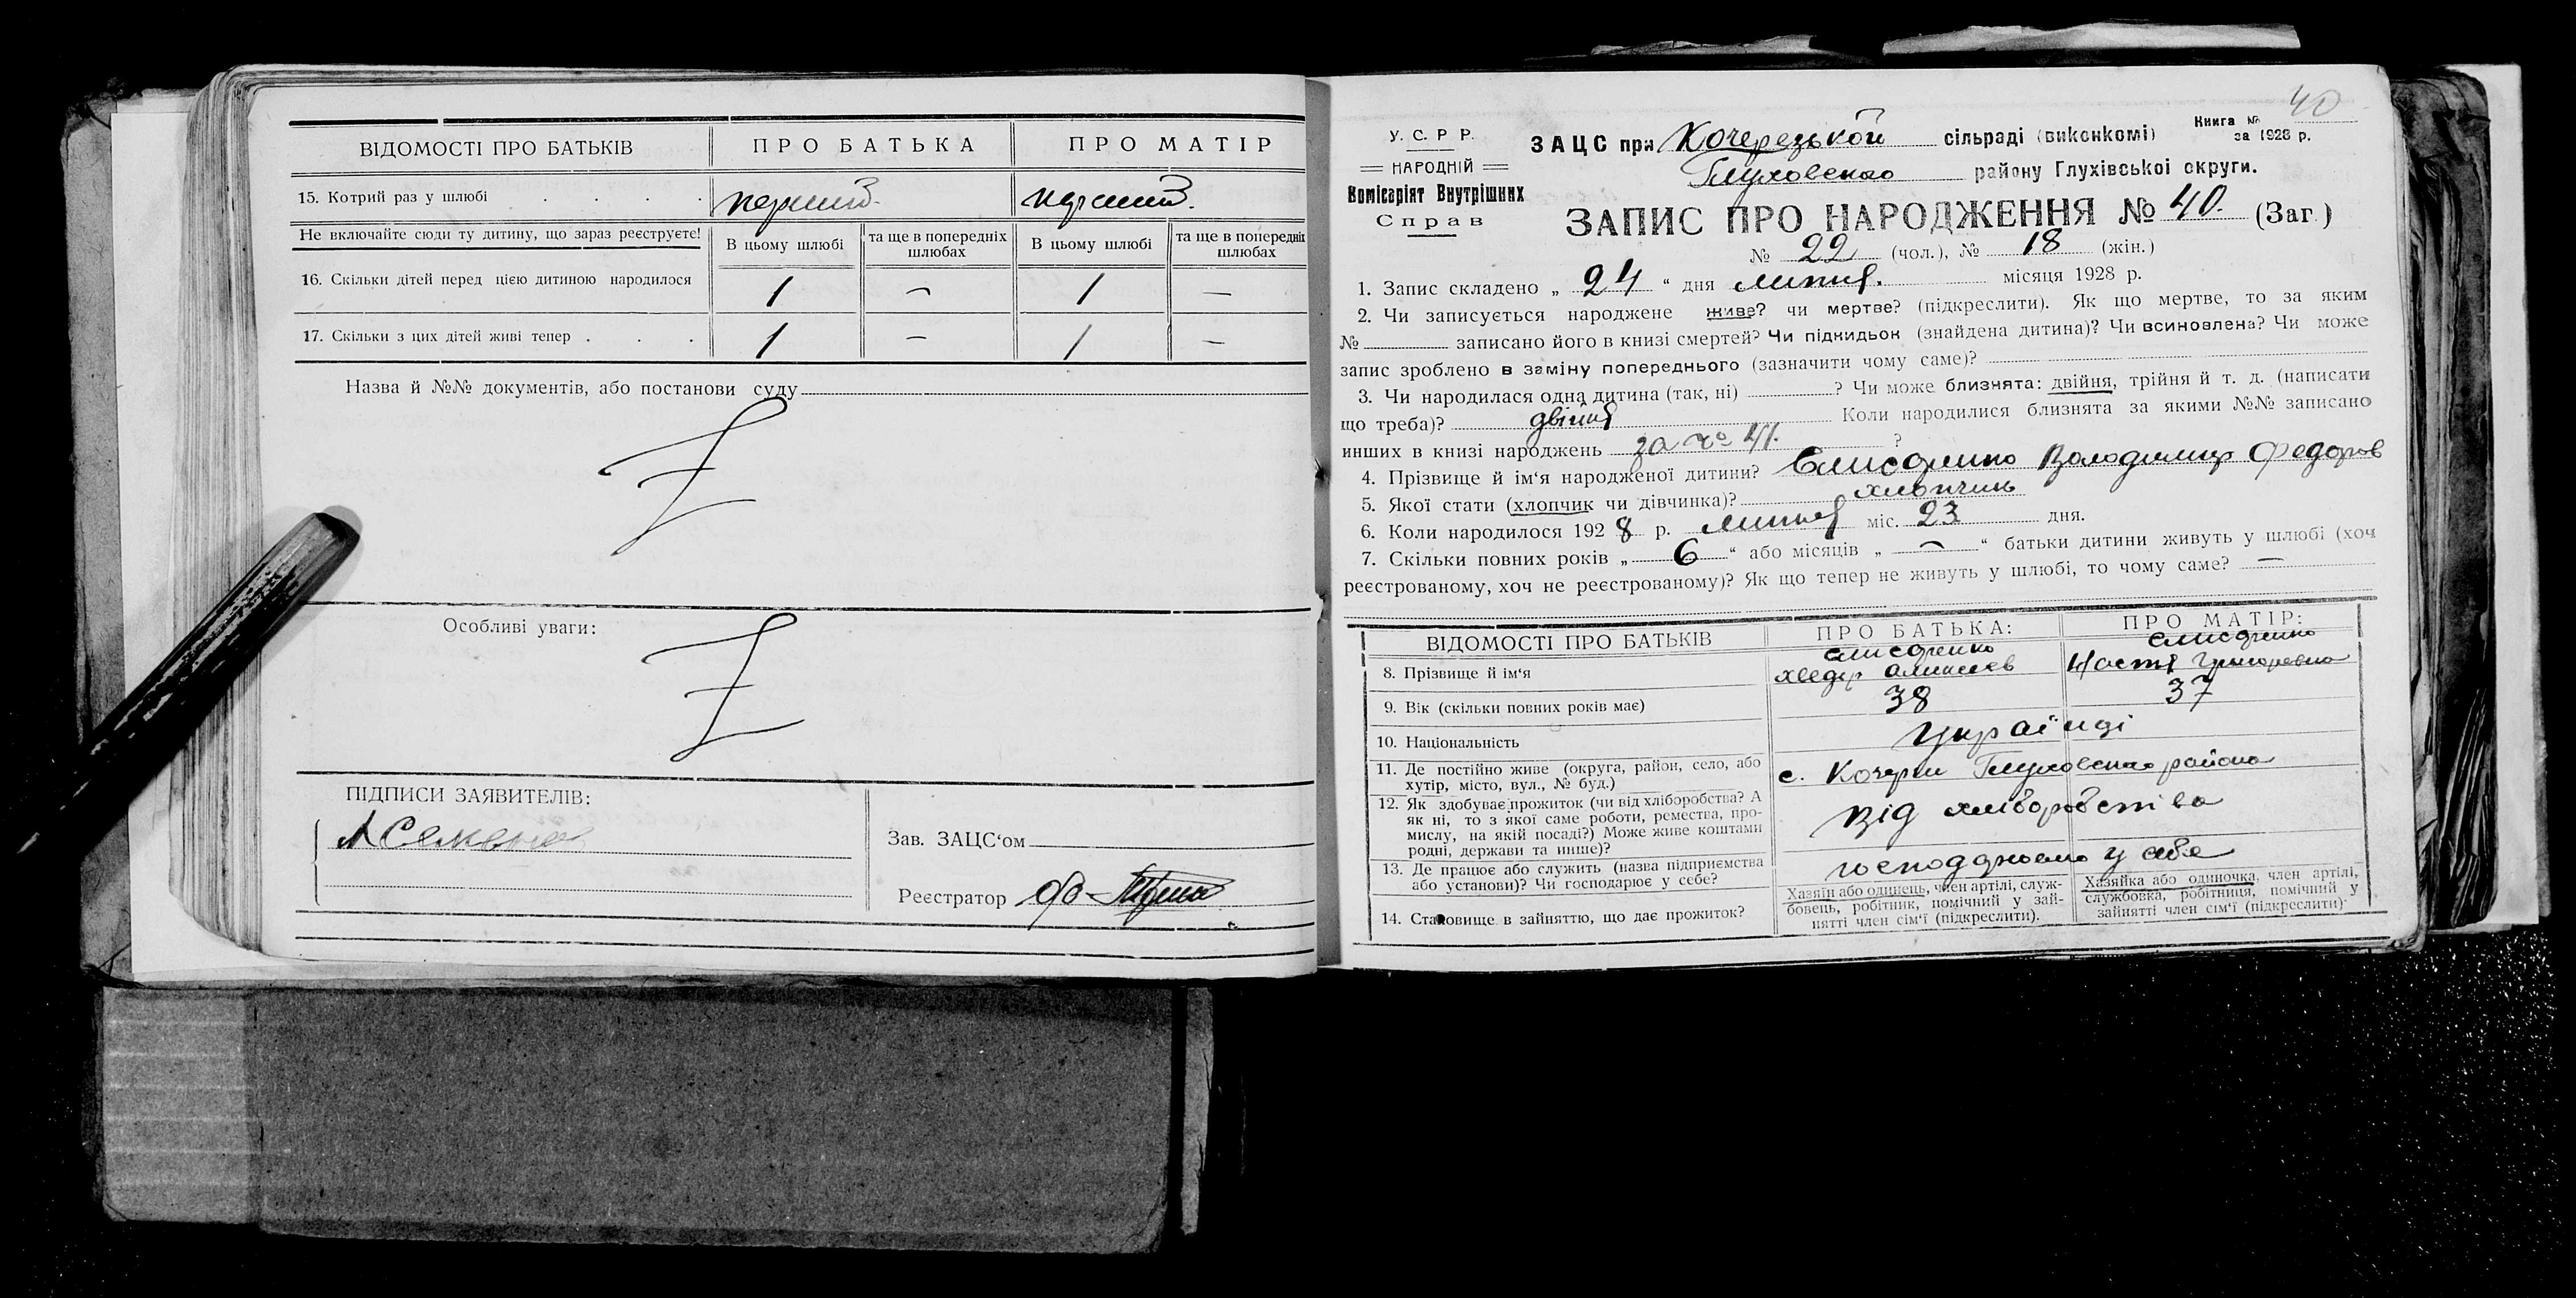 ВІДОМОСТІ ПРО БАТЬКІВ
ПРО БАТЬКА
ПРО МАТІР
15. Котрий раз у шлюбі . . . .
перший
перший.
Не включайте сюди ту дитину, що зараз реєструєте!
В цьому шлюбі
та ще в попередніх шлюбах
В цьому шлюбі
та ще в попередніх шлюбах
16. Скільки дітей перед цією дитиною народилося
1 — 1 —
17. Скільки з цих дітей живі тепер . . .
1 — 1 —
Назва й №№ документів, або постанови суду
Особливі уваги:
ПІДПИСИ ЗАЯВИТЕЛІВ:
Зав. ЗАЦС'ом
Реєстратор
40
У. С. Р. Р.
НАРОДНІЙ
Комісаріят Внутрішних
Справ
ЗАЦС при Кочерецькой сільраді (виконкомі)
Книга №
за 1928 р.
Глуховского району Глухівської округи.
ЗАПИС ПРО НАРОДЖЕННЯ № 40. (Заг.)
№ 22 (чол.), № 18 (жін.)
1. Запис складено „ 24 “ дня липня. місяця 1928 р.
2. Чи записується народжене живе? чи мертве? (підкреслити). Як що мертве, то за яким
№ записано його в книзі смертей? Чи підкидьок (знайдена дитина)? Чи всиновлена? Чи може
запис зроблено в заміну попереднього (зазначити чому саме)?
3. Чи народилася одна дитина (так, ні) ? Чи може близнята: двійня, трійня й т. д. (написати
що треба)? двійня Коли народилися близнята за якими №№ записано
инших в книзі народжень за № 41. ?
4. Прізвище й ім'я народженої дитини? Володимир Федоров
5. Якої стати (хлопчик чи дівчинка)? хлопчик
6. Коли народилося 1928 р. липня міс. 23 дня.
7. Скільки повних років „ 6 “ або місяців „ — “ батьки дитини живуть у шлюбі (хоч
реєстрованому, хоч не реєстрованому)? Як що тепер не живуть у шлюбі, то чому саме? —
ВІДОМОСТІ ПРО БАТЬКІВ
ПРО БАТЬКА:
ПРО МАТІР:
8. Прізвище й ім'я
Хведір
Настя Григоревна
9. Вік (скільки повних років має)
38
37
10. Національність
Українці
11. Де постійно живе (округа, район, село, або
хутір, місто, вул., № буд.)
с. Кочерги Глуховского района
12. Як здобуває прожиток (чи від хліборобства? А
як ні, то з якої саме роботи, ремества, про-
мислу, на якій посаді?) Може живе коштами
родні, держави та инше)?
від хліборобства
13. Де працює або служить (назва підприємства
або установи)? Чи господарює у себе?
у себе
14. Становище в зайняттю, що дає прожиток?
Хазяїн або одинець, член артілі, служ-
бовець, робітник, помічний у зай-
нятті член сім'ї (підкреслити).
Хазяйка або одиночка, член артілі,
службовка, робітниця, помічний у
зайнятті член сім'ї (підкреслити).